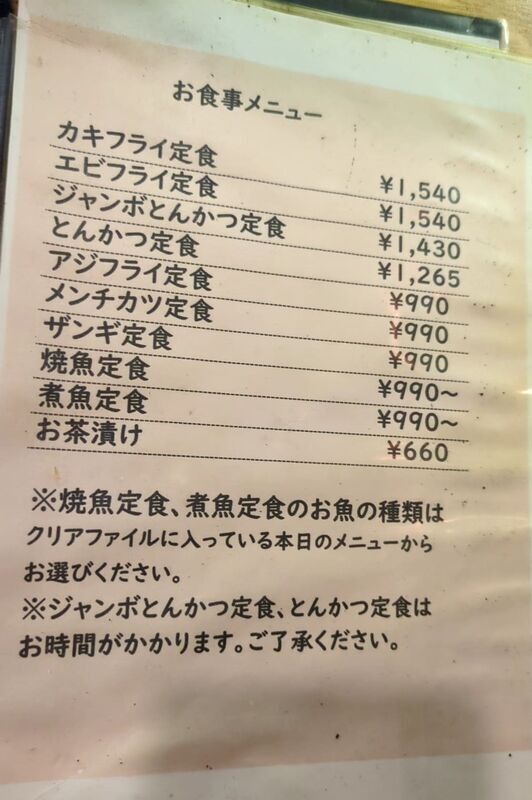 お食事メニュー
カキフライ定食 ¥1,540
エビフライ定食 ¥1,540
ジャンボとんかつ定食 ¥1,430
とんかつ定食 ¥1,265
アジフライ定食 ¥990
メンチカツ定食 ¥990
ザンギ定食 ¥990
焼魚定食 ¥990～
煮魚定食 ¥990～
お茶漬け ¥660
※焼魚定食、煮魚定食のお魚の種類は
クリアファイルに入っている本日のメニューから
お選びください。
※ジャンボとんかつ定食、とんかつ定食は
お時間がかかります。ご了承ください。